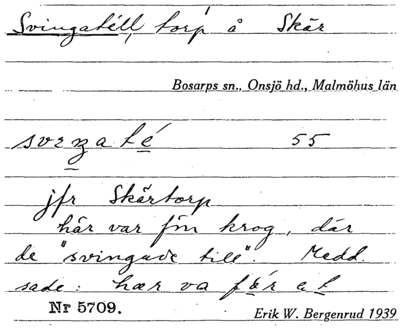 Svingatéll, torp å Skär
Bosarps sn., Onsjö hd., Malmöhus län
55
jfr Skärtorp
här var förr krog, där
de "svingade till". Medd.
sade: hær va
Nr 5709.
Erik W. Bergenrud 1939